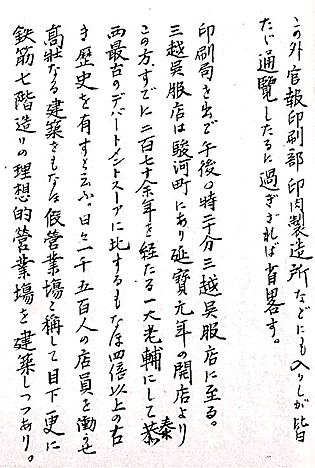 この外官報印刷部印肉製造所などにも入りしが皆
たゞ通覧したるに過ぎざれば省畧す。
印刷局を出で午後〇時二十分三越呉服店に至る。
三越呉服店は駿河町にあり延寶元年の開店より
この方、すでに二百七十余年を経たる一大老輔にして泰
西最古のデパートメントストーアに比するもなほ四倍以上の古
き歴史を有すと云ふ。日々千五百人の店員を働かせ
高壮なる建築さもなほ假營業場と稱して目下更に
鉄筋七階造りの理想的營業場を建築しつつあり。